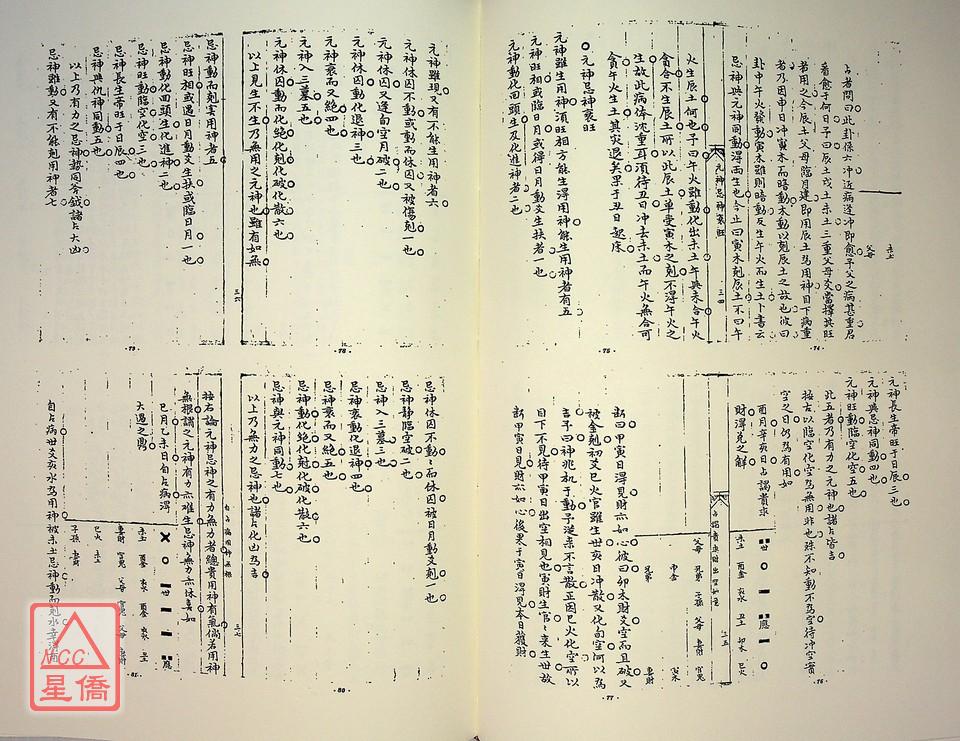 占者問曰此卦係六冲近病逢冲即愈予父之病甚重君
看愈于何日予曰辰土戌土未土三重父母爻當擇其旺
者用之今辰土父母臨月建即用辰土為用神目下病重
者乃因申日冲寅木而暗動木動以剋辰土之故也彼曰
卦中午火發動寅木雖則暗動反生午火而生土卜書云
忌神與元神同動淂兩生也今止曰寅木剋辰土不曰午
元神忌神衰旺
三四
火生辰土何也予曰午火雖動化出未土午與未合午火
貪合不生辰土所以此辰土單受寅木之剋不淂午火之
生故此病体沈重耳須待丑日冲去未土而午火無合可
貪午火生土其灾退矣果于丑日起床
元神忌神衰旺
元神雖生用神須旺相方能生淂用神能生用神者有五
元神旺相或臨日月或得日月動爻生扶者一也
元神動化回頭生及化進神者二也
74
75
元神長生帝旺于日辰三也
元神與忌神同動四也
元神旺動臨空化空五也
此五者乃有力之元神也諸占皆吉
按古以臨空化空為無用非也殊不知動不為空待冲空實
空之日仍為有用如
酉月辛亥日占謁貴求
財淂兌之解
占謁貴求財出空如意
三五
斷曰甲寅日淂見財亦如心彼曰卯木財爻空而且破又
被金剋初爻巳火官雖生世亥日冲散又化旬空何以為
吉予曰神兆机于動予逆來不言散正因巳火化空所以
目下不見待甲寅日出空相見也寅財生官來生世故
斷甲寅日見財亦如心後果于寅日淂見本日獲財
76
77
元神雖現又有不能生用神者六
元神休囚不動或動而休囚又被傷剋一也
元神休囚又逢旬空月破二也
元神休囚動化退神三也
元神衰而又絶四也
元神入三墓五也
元神休囚動而化絶化剋化破化散六也
以上見生不生乃無用之元神也雖有如無
三六
忌神動而剋害用神者五
忌神旺相或遇日月動爻生扶或臨日月一也
忌神動化回頭生化進神二也
忌神旺動臨空化空三也
忌神長生帝旺于日辰四也
忌神與仇神同動五也
以上乃有力之忌神勢同斧鉞諸占大凶
忌神雖動又有不能剋用神者七
78
79
忌神休囚不動動而休囚被日月動爻剋一也
忌神静臨空破二也
忌神入三墓三也
忌神衰動化退神四也
忌神衰而又絶五也
忌神動化絶化剋化破化散六也
忌神與元神同動七也
以上乃無力之忌神也諸占化凶為吉
三七
按右論元神忌神之有力無力者總貴用神有氣倘若用神
無根謂之元神有力亦难生忌神無力亦休喜如
巳月乙未日自占病淂
大過之鼎
自占病世爻亥水為用神被未土忌神動而剋水幸淂酉
80
81
NCC
星僑